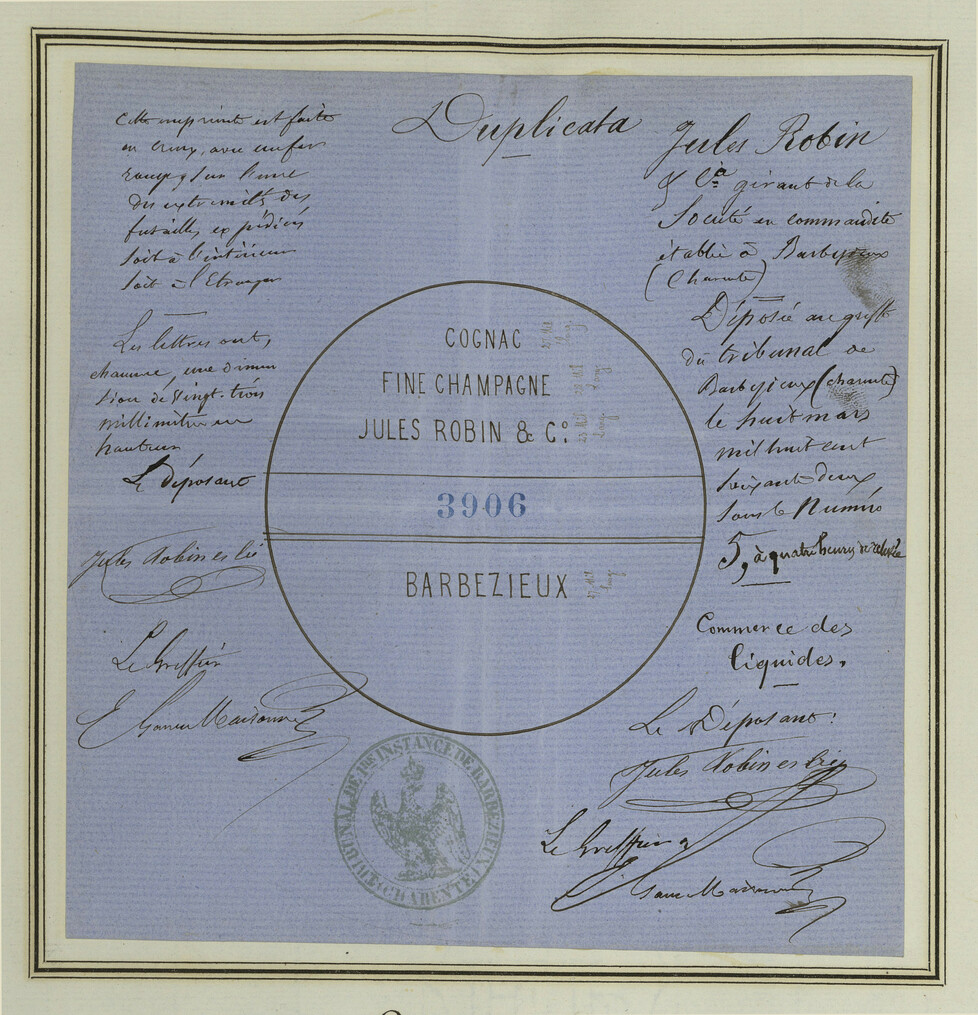 Duplicata
Cette empreinte est faite
en creux, avec un fer
rouge, sur l'une
des extremités des
futailles expédiées
soit à l'intérieur
soit à l'Etranger
Les lettres ont,
chacune, une dimen
sion de vingt-trois
millimètres en
hauteur
Le déposant
Jules Robin et Cie
Le Greffier
COGNAC
FINE CHAMPAGNE
JULES ROBIN & Co:
3906
BARBEZIEUX
TRIBUNAL DE 1re INSTANCE DE BARBEZIEUX (CHARENTE)
Jules Robin
& Cie gérant de la
Société en commandite
établie à Barbezieux
(Charente)
Déposé au greffe
du tribunal de
Barbezieux (charente)
le huit mars
mil huit cent
soixante deux
sous le Numéro
5, à quatre heures de relevée
Commerce des
liquides.
Le Déposant:
Jules Robin et Cie
Le Greffier